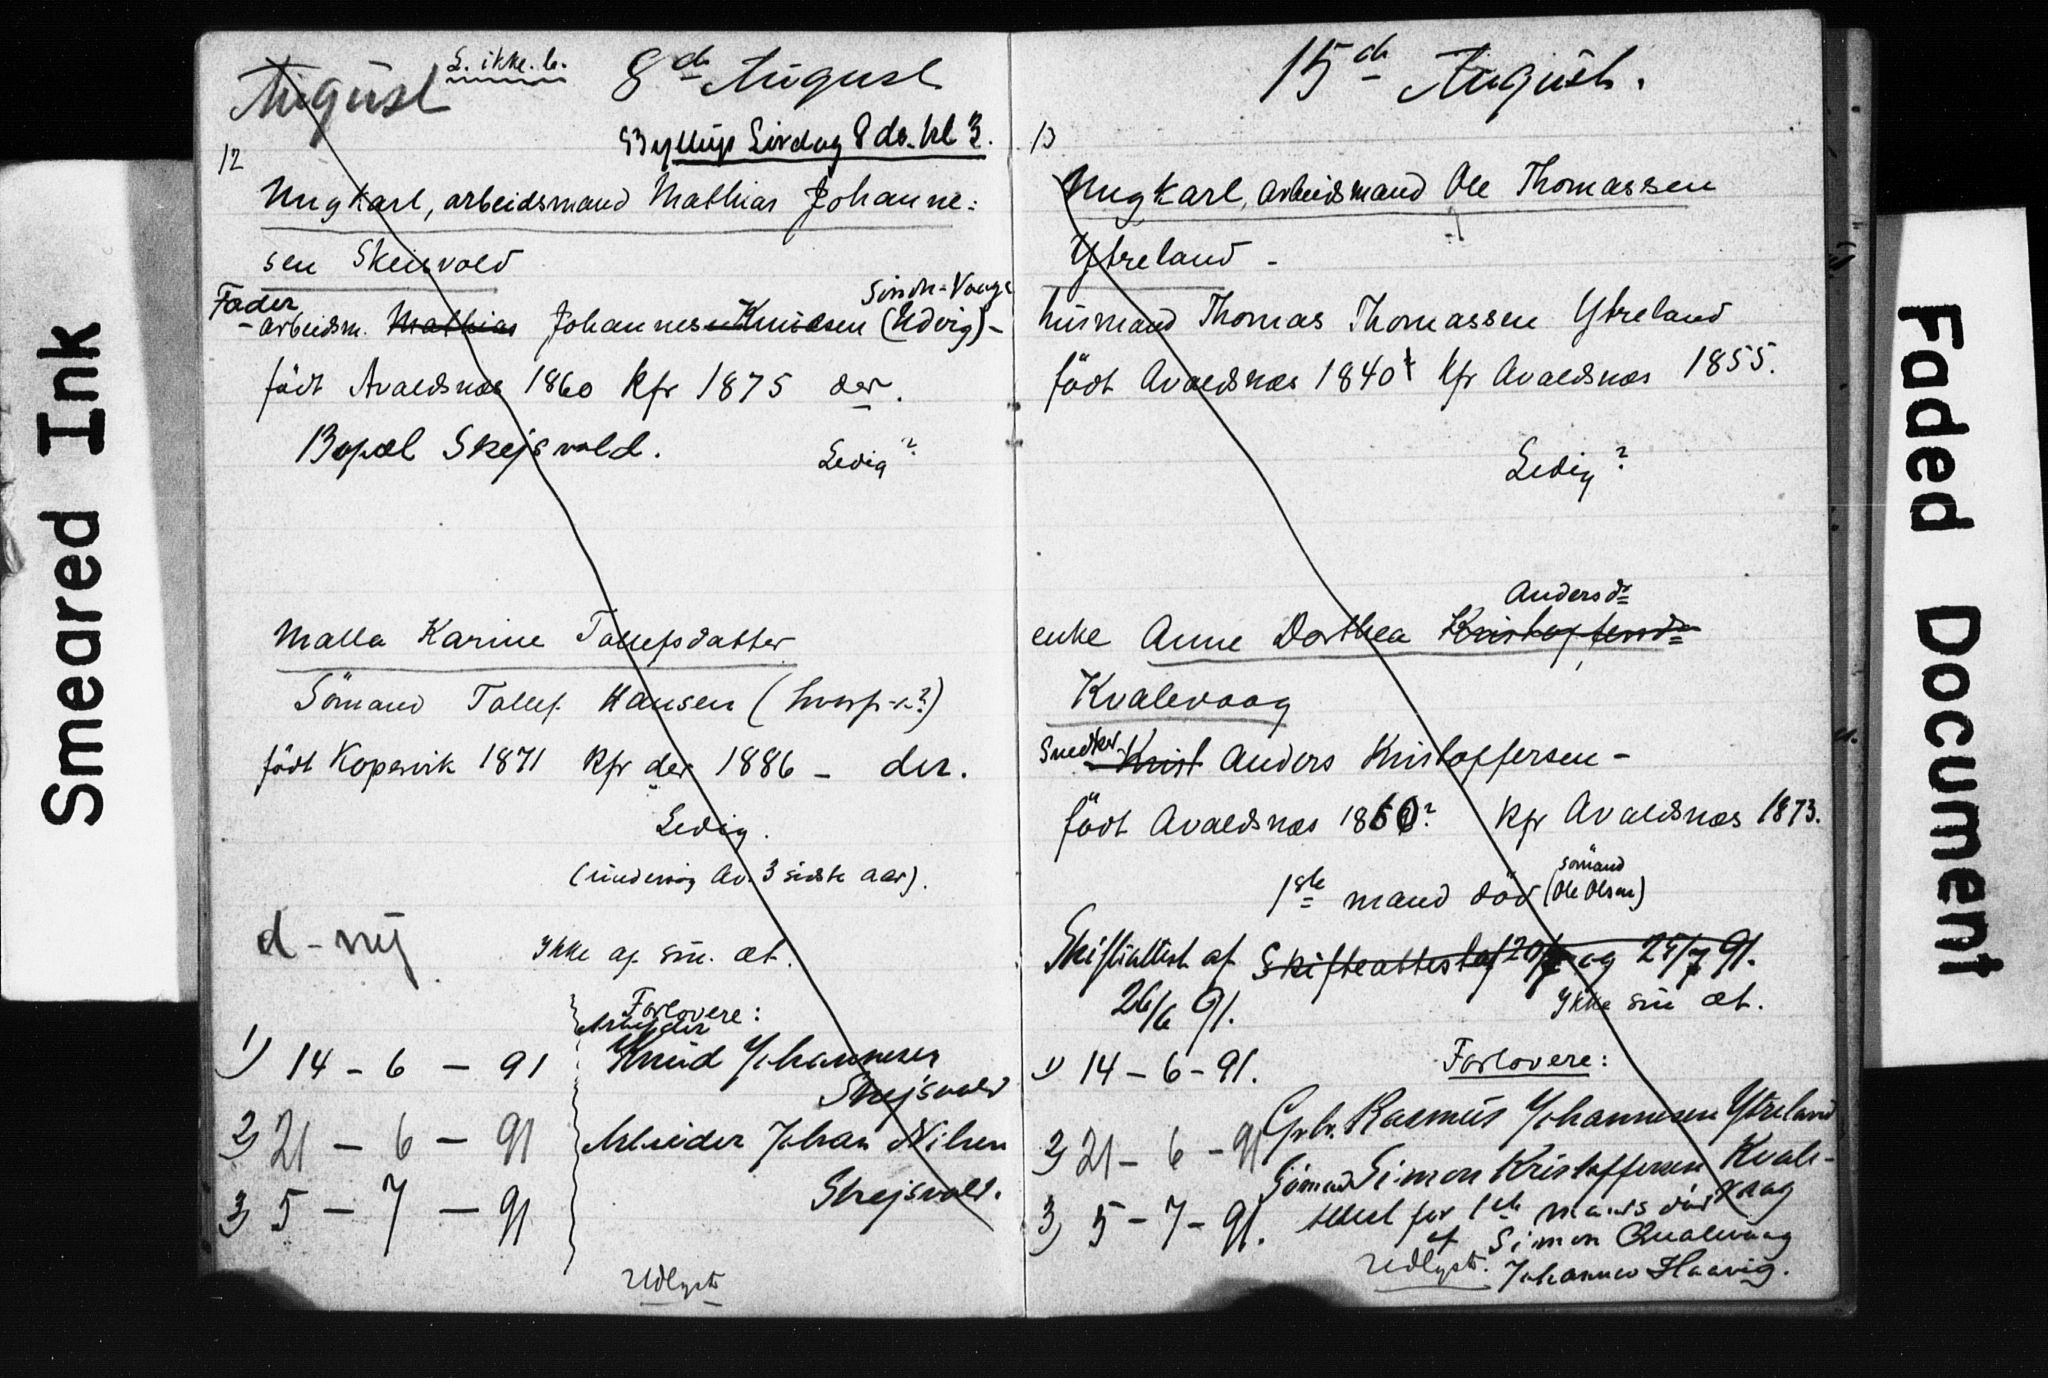 Smeared Ink
August
S. ikke. b.
8de August
Bryllup Lördag 8 ds. kl 3.
12
Ungkarl, arbeidsmand Mathias Johanne=
sen Skeisvold
Fader
arbeidsm. Mathias Johannes Knudsen (Udvig) –
födt Avaldsnæs 1860 Kfr 1875 der.
Bopæl Skejsvold.
Ledig?
Malla Karine Tollefsdatter
Sömand Tollef Hansen
födt Kopervik 1871 Kfr der 1886 – der.
Ledig.
(underviig Av. 3 sidste aar).
d – nÿ
Ikke af sm. æt.
Forlovere:
1) 14 – 6 – 91
Arbejder
Knud Johannesen
Skejsvold
2) 21 – 6 – 91
Arbeider Johan Nilsen
Skejsvold.
3) 5 – 7 – 91
Udlyst
15de August.
13
Ungkarl, arbeidsmand Ole Thomassen
Ytreland –
husmand Thomas Thomassen Ytreland
födt Avaldsnæs 1840 Kfr Avaldsnæs 1855.
Ledig?
Andersdr
enke Anne Dorthea Kristoffersdr
Kvalevaag
Snedker Krist Anders Kristoffersen –
födt Avaldsnæs 1860? Kfr Avaldsnæs 1873.
1ste mand död (sömand Ole Olsen)
Skifteattest af Skifteattest af 20/7 og 25/7 91.
26/6 91.
Ikke sm æt.
1) 14 – 6 – 91.
Forlovere:
Gbr. Rasmus Johannesen Ytreland
2) 21 – 6 – 91
Sömand Simon Kristoffersen Kvale-
vaag
3) 5 – 7 – 91.
attest for 1ste mands död
af Simon Qualevaag
Udlyst.
Johannes Haavig.
Faded Document